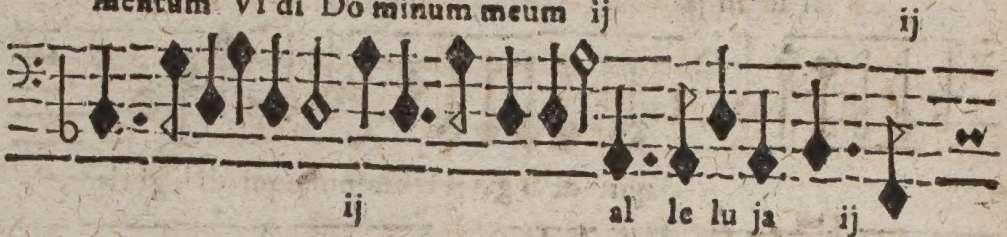 mentum Vi di Do minum meum ij ij
ij al le lu ja ij